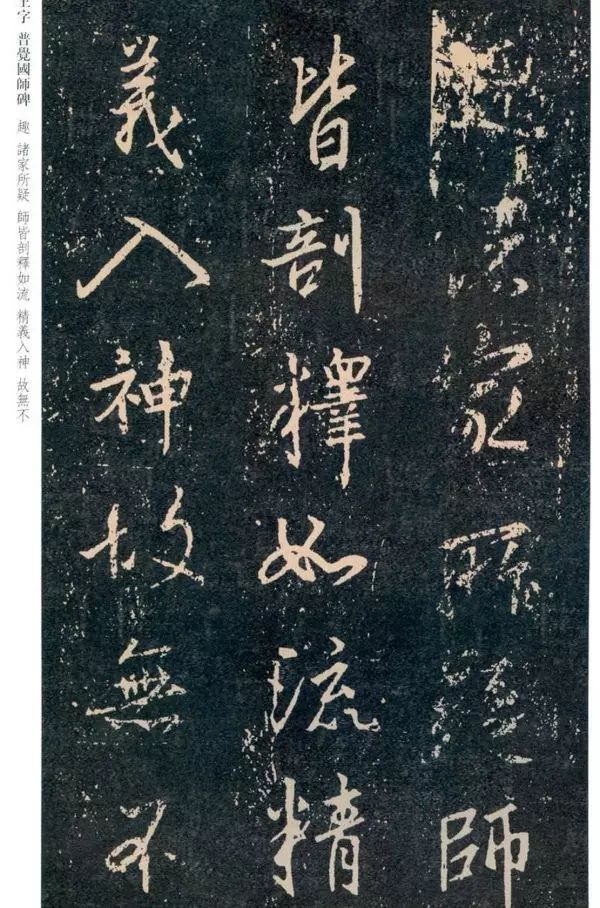 趣諸家所疑師
皆剖釋如流精
義入神故無不
王字 普覺國師碑 趣 諸家所疑 師皆剖釋如流 精義入神 故無不